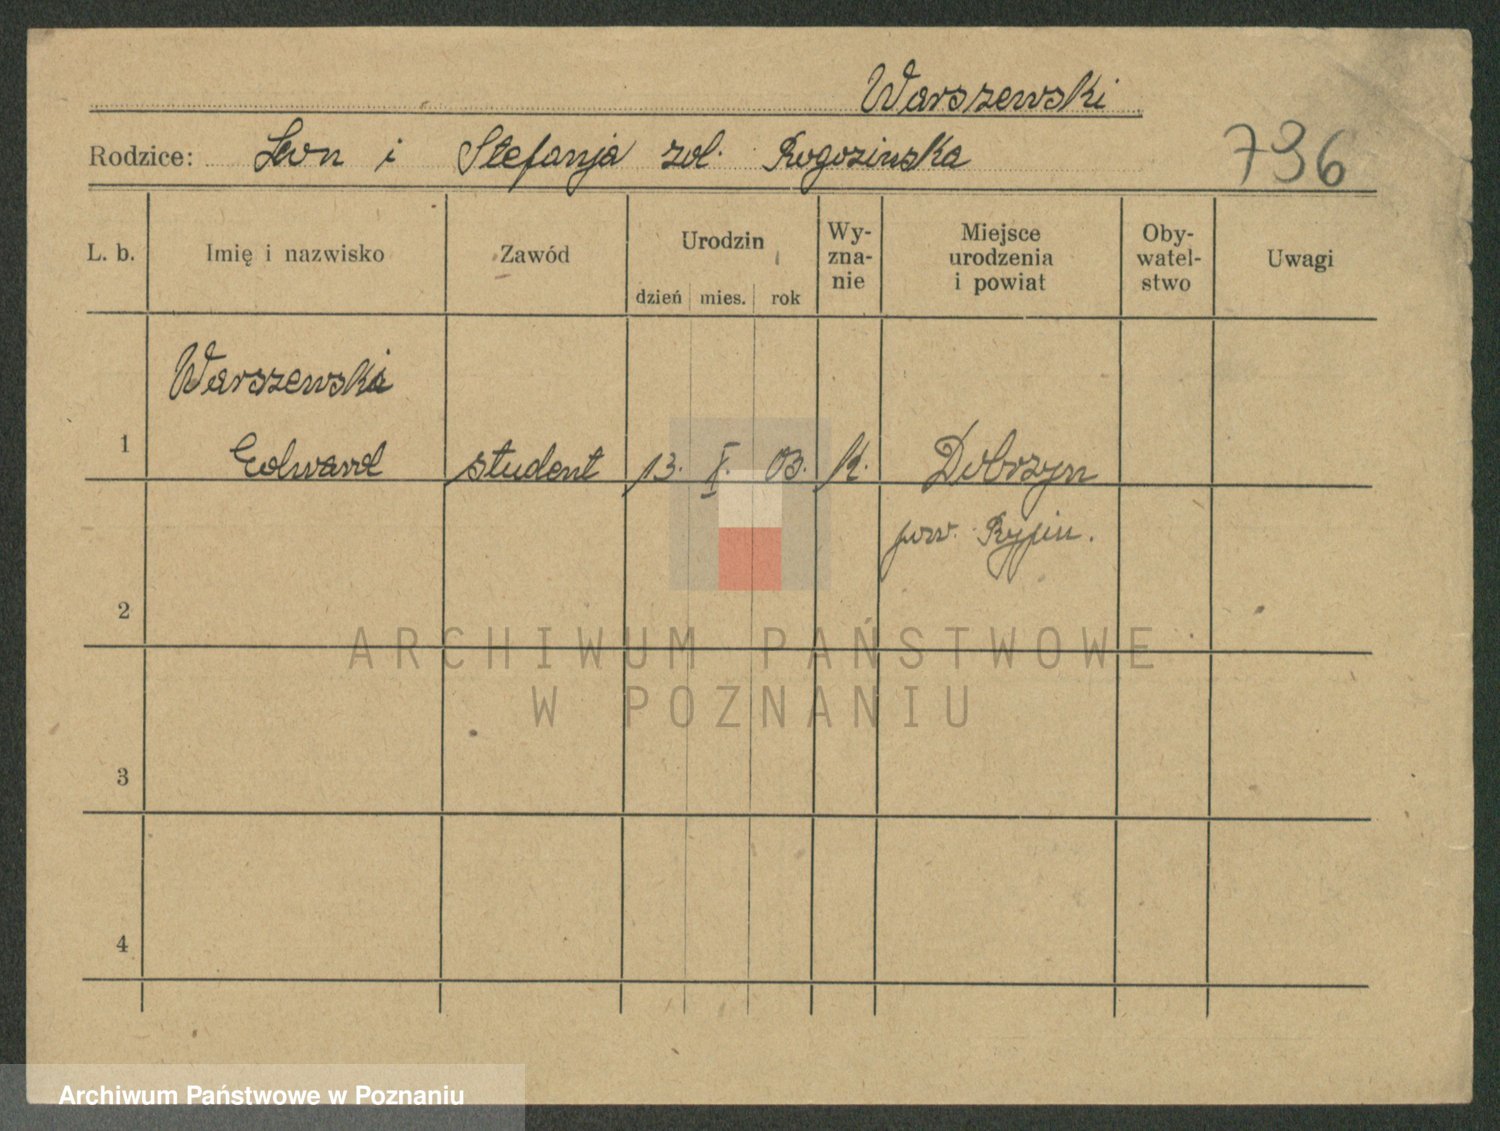 Warszewski
Rodzice: Leon i Stefanja zol. Rogozinska
796
L. b.
Imię i nazwisko
Zawód
Urodzin
dzień mies. rok
Wy-
zna-
nie
Miejsce
urodzenia
i powiat
Oby-
watel-
stwo
Uwagi
Warszewski
1 Edward student 13. X. 03. K. Dobrzyn
pow. Rypin.
2
ARCHIWUM PAŃSTWOWE
W POZNANIU
3
4
Archiwum Państwowe w Poznaniu